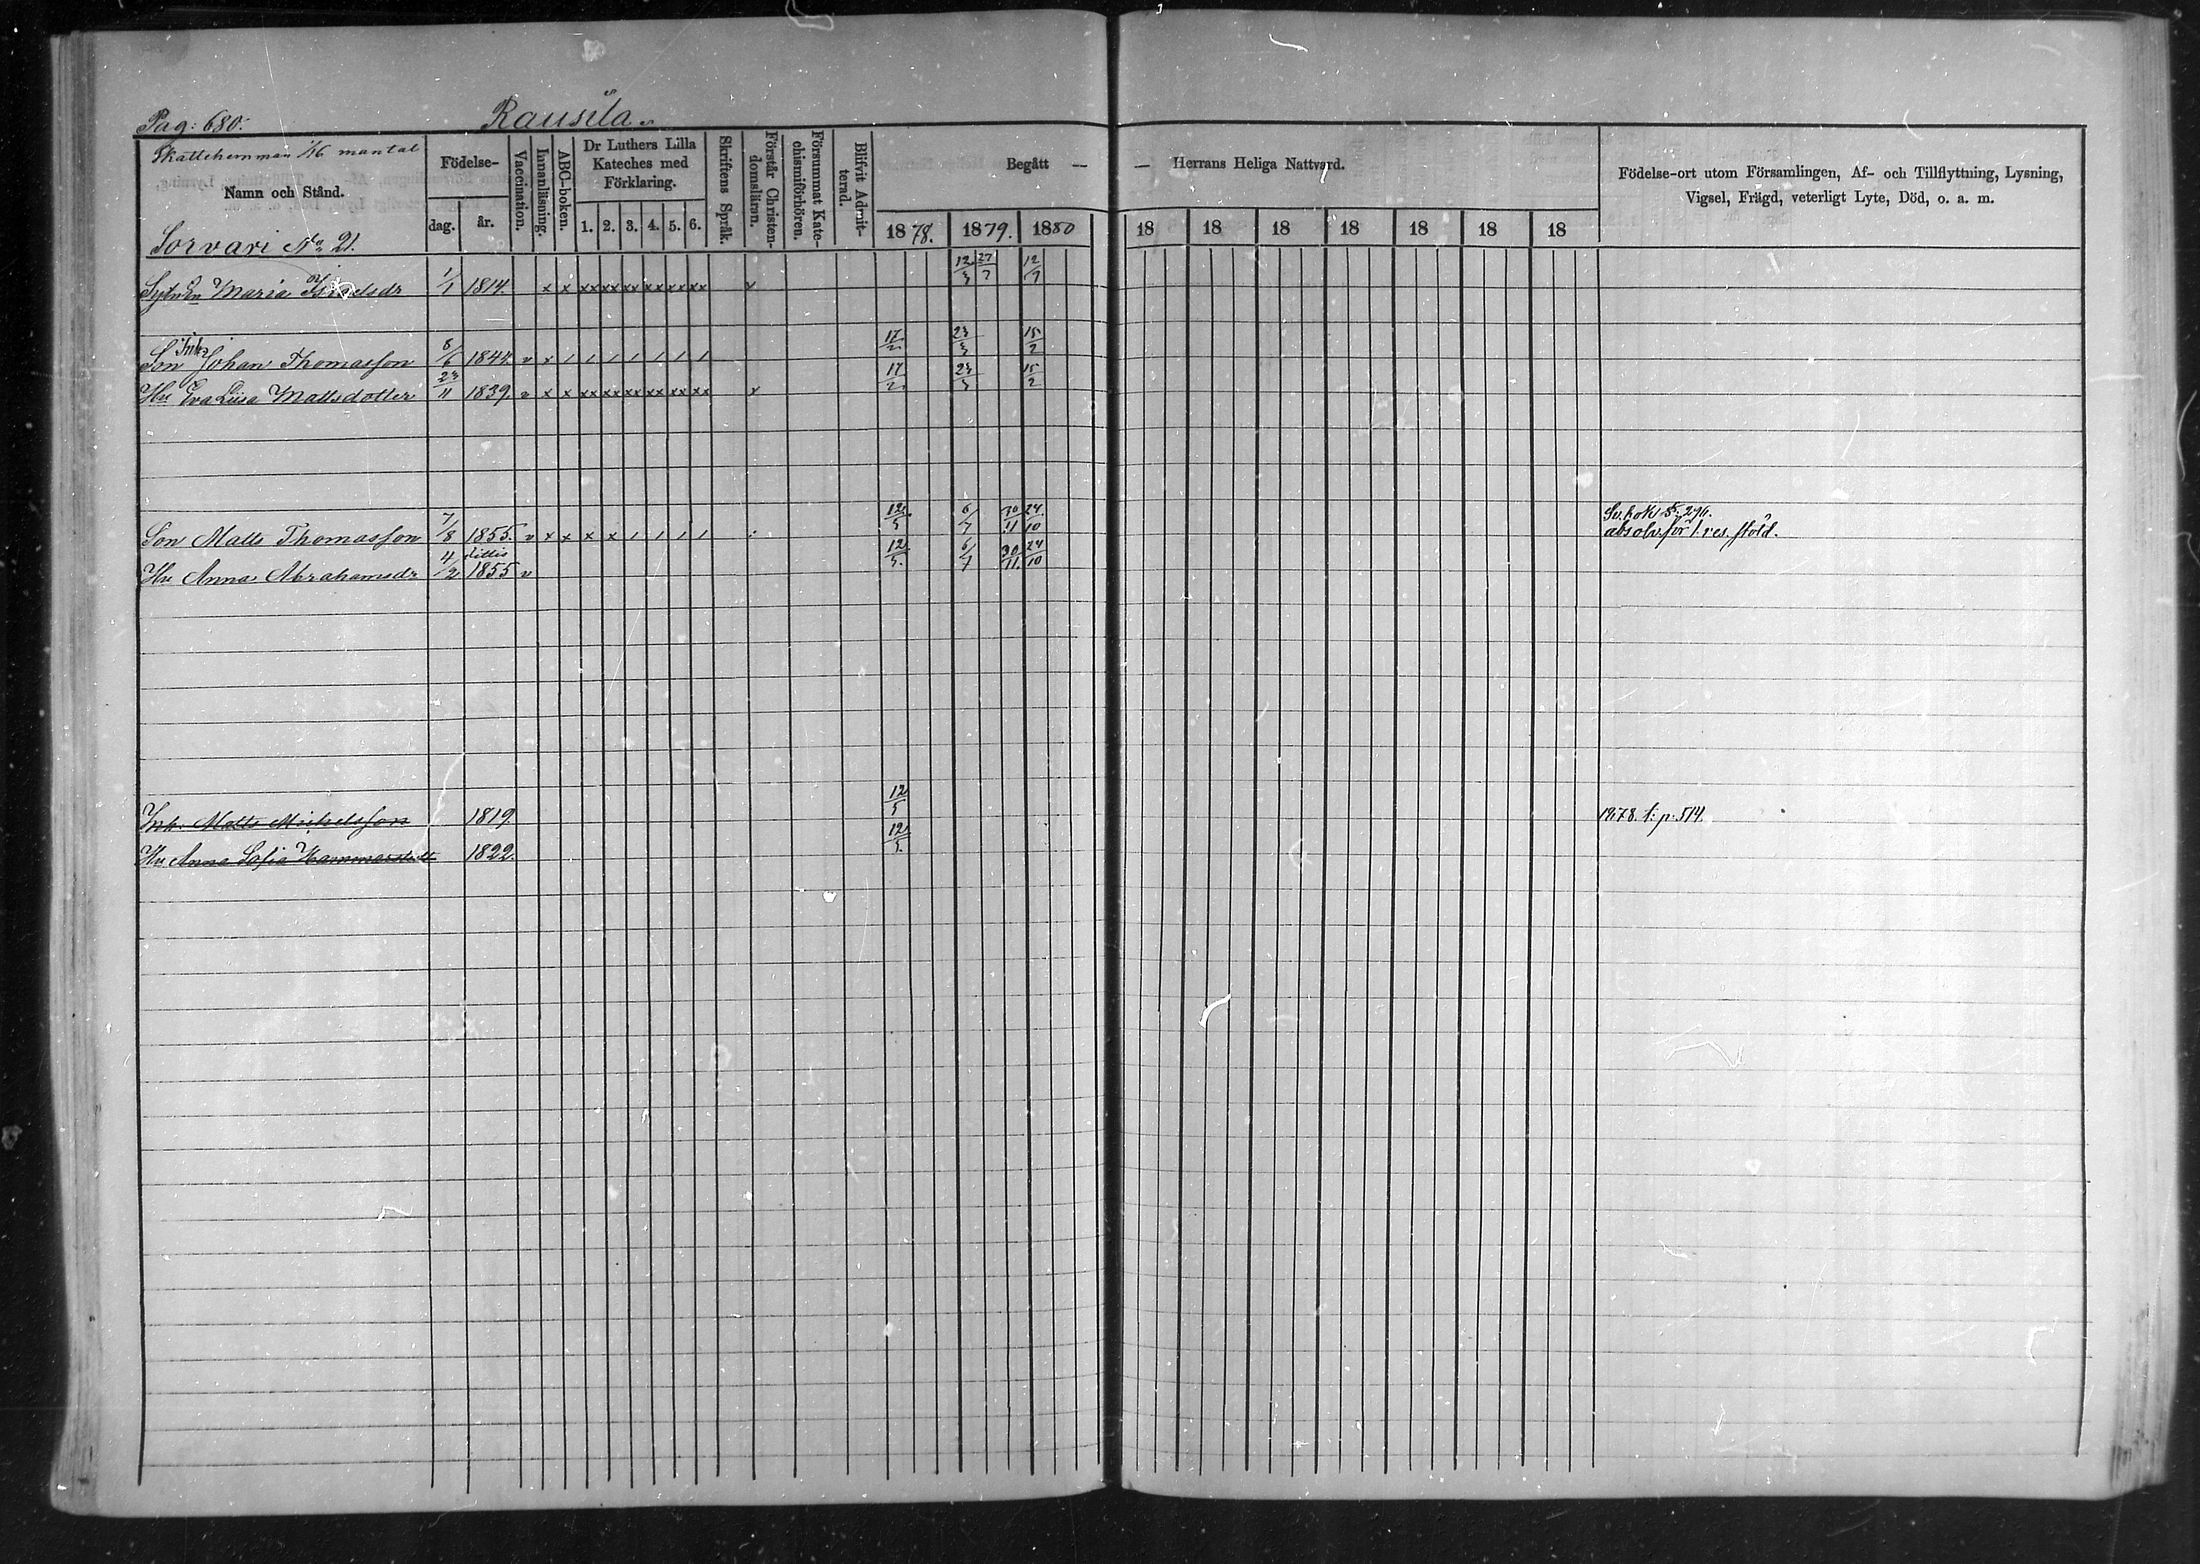 Pag: 680. Rausila
Skattehemman 1/6 mantal
Namn och Stånd.
Sorvari No 21.
Födelse-
dag. år.
Vaccination.
Innanläsning.
ABC-boken.
Dr Luthers Lilla
Kateches med
Förklaring.
1. 2. 3. 4. 5. 6.
Skriftens Språk.
Förstår Christen-
domsläran.
Försummat Kate-
chismiförhören.
Blifvit Admit-
terad.
Begått — — Herrans Heliga Nattvard.
1878. 1879. 1880 18 18 18 18 18 18 18
Födelse-ort utom Församlingen, Af- och Tillflyttning, Lysning,
Vigsel, Frägd, veterligt Lyte, Död, o. a. m.
Maria 1/1 1814. x x xx xx xx xx xx xx x 12/3 27/7 12/7
Son Johan Thomasson 8/6 1844. v x / / / / / / / 17/2 23/3 15/2
Hu Eva Lisa Mattsdotter 23/11 1839. v x x xx xx xx xx xx xx x 17/2 23/3 15/2
Son Matts Thomasson 7/8 1855. v x x x x / / / / 12/5 6/7 30/11 24/10 absolv. för 1. res. stöld.
Hu Anna Abrahamsdr 4/2 1855 v 12/5. 6/7 30/11. 24/10
Inh. Matts Michelsson 1819. 12/5 1878. f: p. 514.
Hu Anna Sofia Hammarstedt 1822. 12/5.